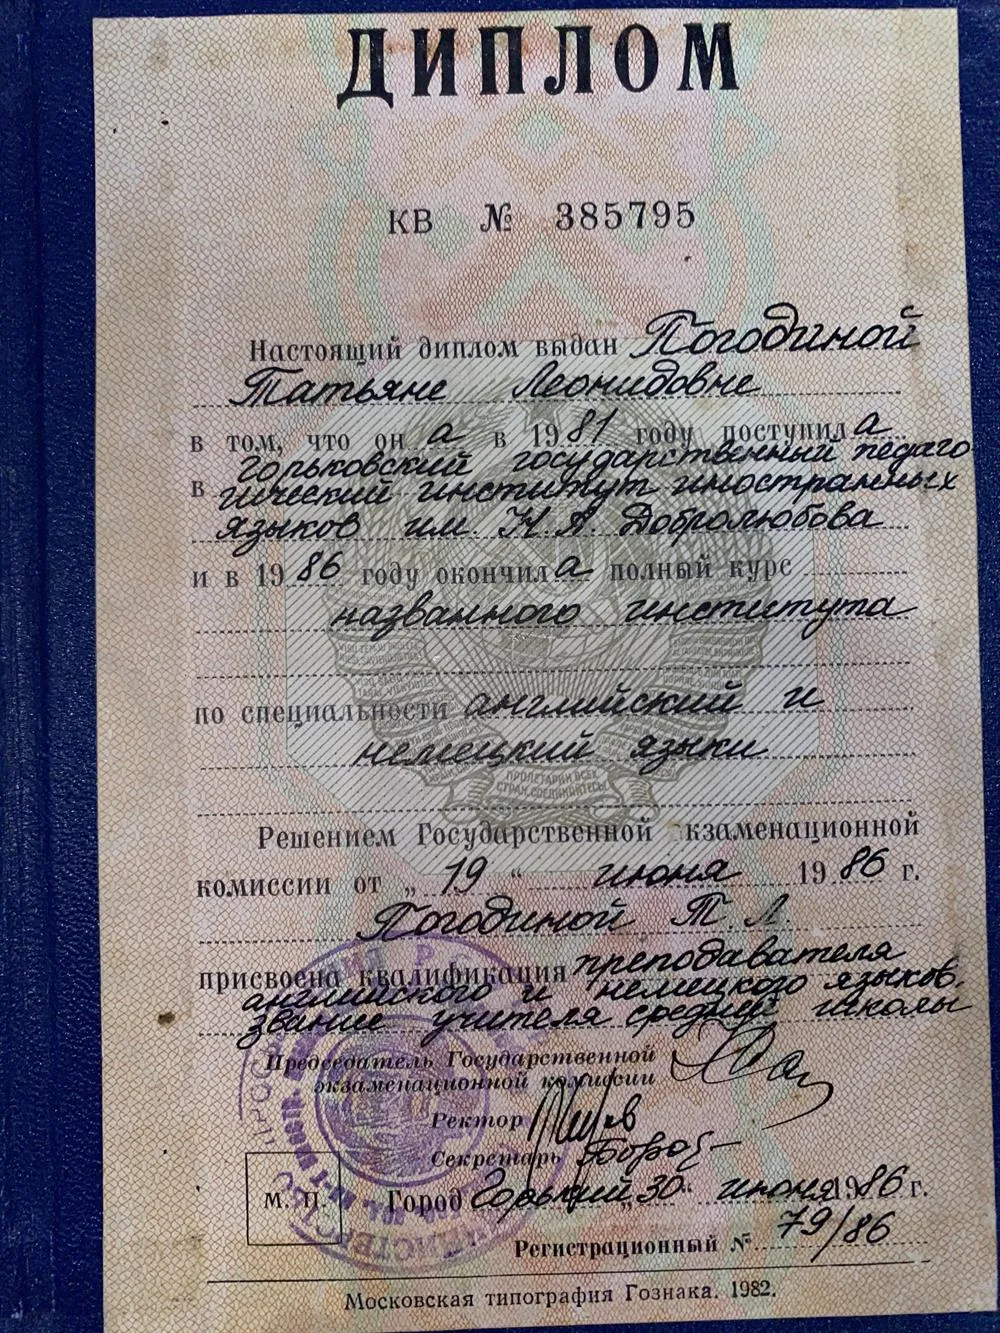 ДИПЛОМ
КВ № 385795
Настоящий диплом выдан Погодиной
Татьяне Леонидовне
в том, что он а в 1981 году поступил а
Горьковский государственный педаго
в гический институт иностранных
языков им. Н. А. Добролюбова
и в 1986 году окончил а полный курс
названного института
по специальности английский и
немецкий языки
ПРОЛЕТАРИИ ВСЕХ
СТРАН, СОЕДИНЯЙТЕСЬ!
Решением Государственной кзаменационной
комиссии от „ 19 “ июня 1986 г.
Погодиной Т. Л.
присвоена квалификация преподавателя
английского и немецкого языков.
звание учителя средней школы
Председатель Государственной
экзаменационной комиссии
Ректор
Секретарь
М. П. Город Горький „ 30 “ июня 1986 г.
Регистрационный № 79/86
Московская типография Гознака. 1982.